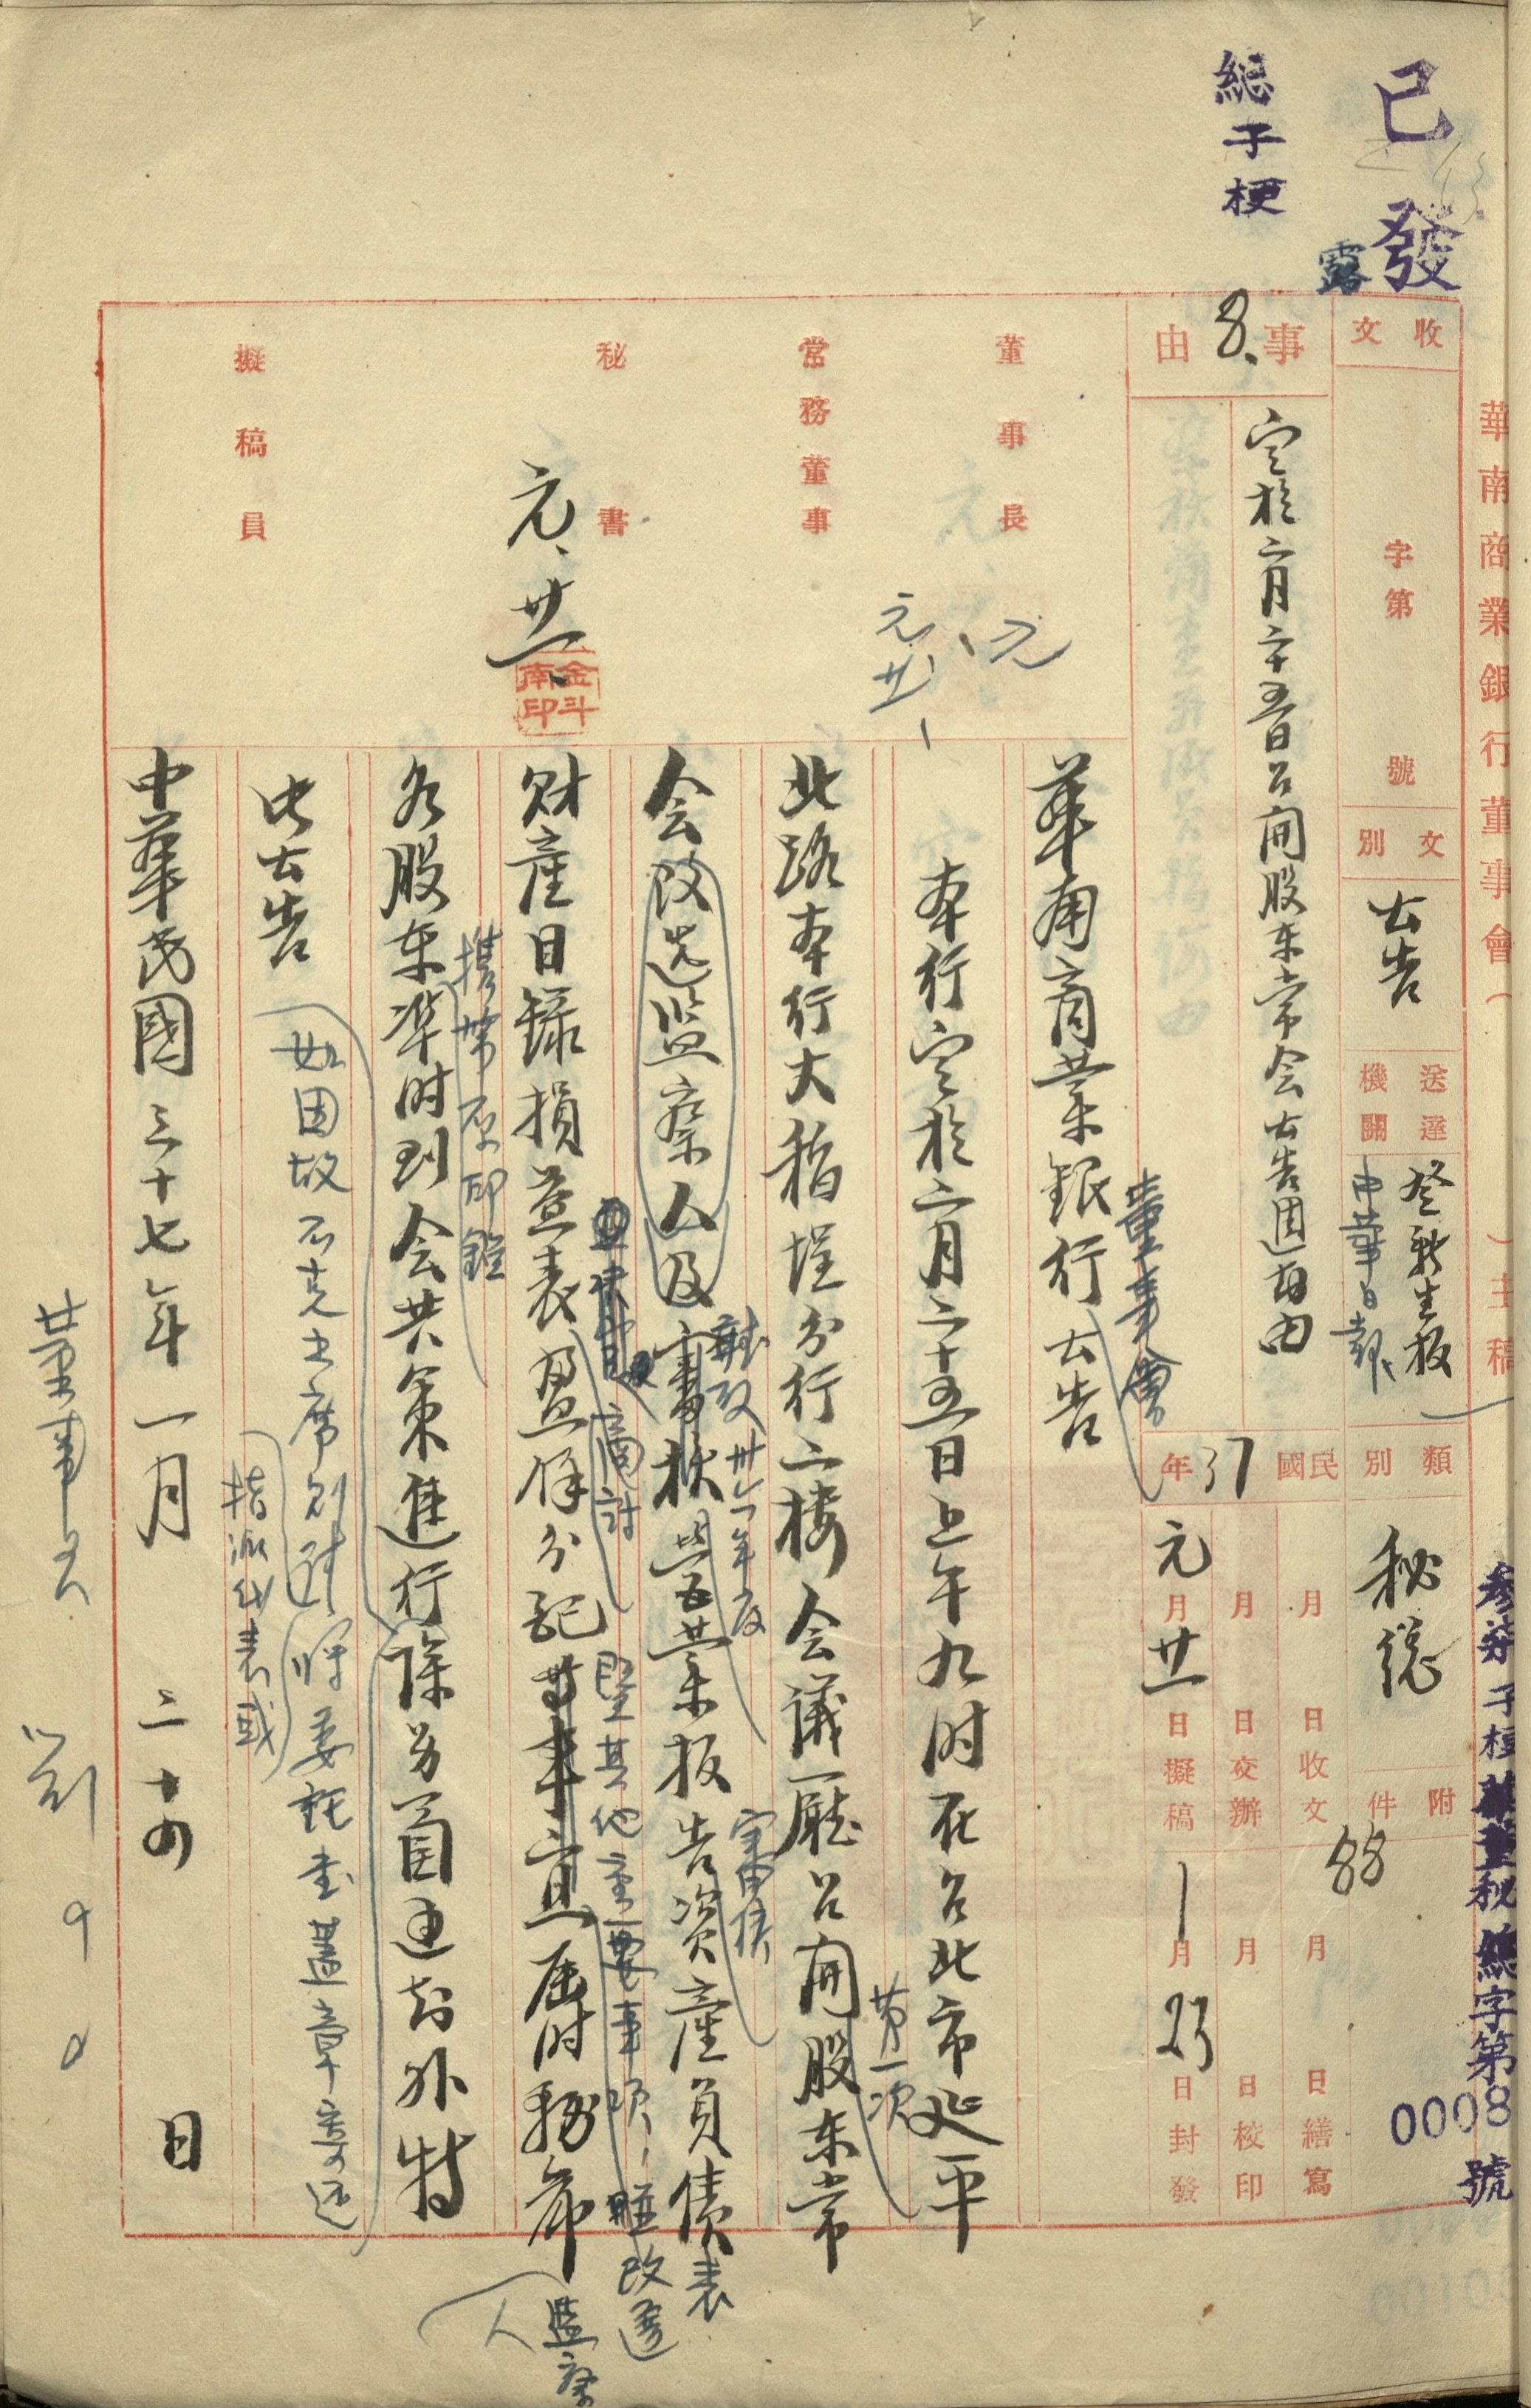 已發
總子梗
露
華南商業銀行董事會( )主稿
參柒子梗華董秘總字第0008號
收文 字第 號
文別 公告
送達機關 登新生报 中華日報
類別 秘總
附件
88
事由
8.
定於二月二十五日召開股东常会公告週知由
民國37年
月 日收文 月 日繕寫
月 日交辦 月 日校印
元月廿一日擬稿 1月23日封發
董事長
常務董事
元廿一
秘書
元、廿一
金斗南印
擬稿員
華南商業銀行公告
董事會
本行定於二月二十五日上午九时在台北市延平
第一次
北路本行大稻埕分行二楼会議廳召開股东常
会改选监察人及審核营業报告資產負債表
卅六年度
財產目錄損益表盈餘分配等事宜屆时務希
商討
暨其他重要事項,並改選
監察人
各股东準时到会共策進行除另函通知外特
攜帶原印鑑
此公告
如因故不克出席則請將委託書蓋章寄还
指派代表或
中華民國三十七年一月二十四日
董事長 劉